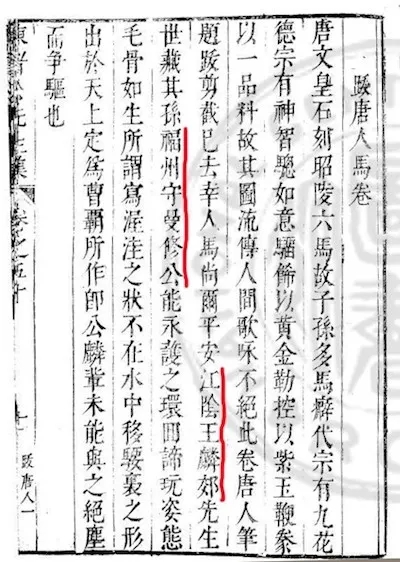 跋唐人馬卷
唐文皇石刻昭陵六馬故子孫多馬癖代宗有九花
德宗有神智驄如意騮飾以黃金勒控以紫玉鞭豢
以一品料故其圖流傳人間歌咏不絕此卷唐人筆
題跋剪截已去幸人馬尚爾平安江陰王麟郊先生
世藏其孫福州守曼修公能永護之環回諦玩姿態
毛骨如生所謂寫渥洼之狀不在水中移騕裊之形
出於天上定爲曹霸所作卽公麟輩未能與之絕塵
而爭驅也
先生集 卷之五十 跋唐人一